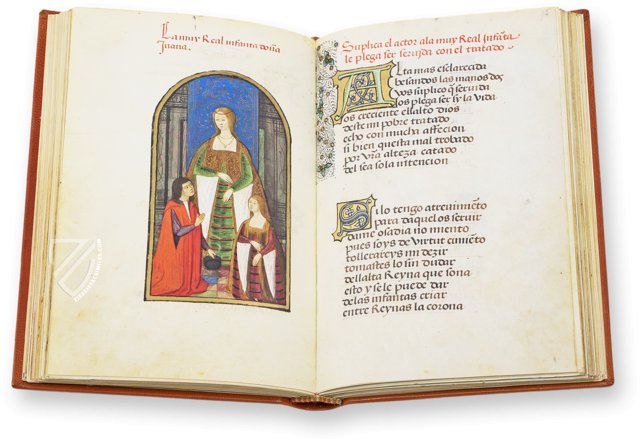 La muy Real infanta doña
Juana.
Suplica el actor ala muy Real Infāta
le plega ser seruida con el tratado
Alta mas esclarecida
besandos las manos dos
vos suplico q̄ seruida
los plega ser sy la vida
os creciente ell alto dios
deste mi pobre tratado
echo con mucha affecion
si bien questa mal trobado
por vr̄a alteza catado
del sea sola intencion
Si lo tengo atreuimēto
para daquelos seruir
dame osadia no miento
pues soys de virtut cimiēto
tollerareys mi dezir
tomastes lo sin dudar
dell alta Reyna que sona
esto y se le puede dar
de las infantas criar
entre Reynas la corona